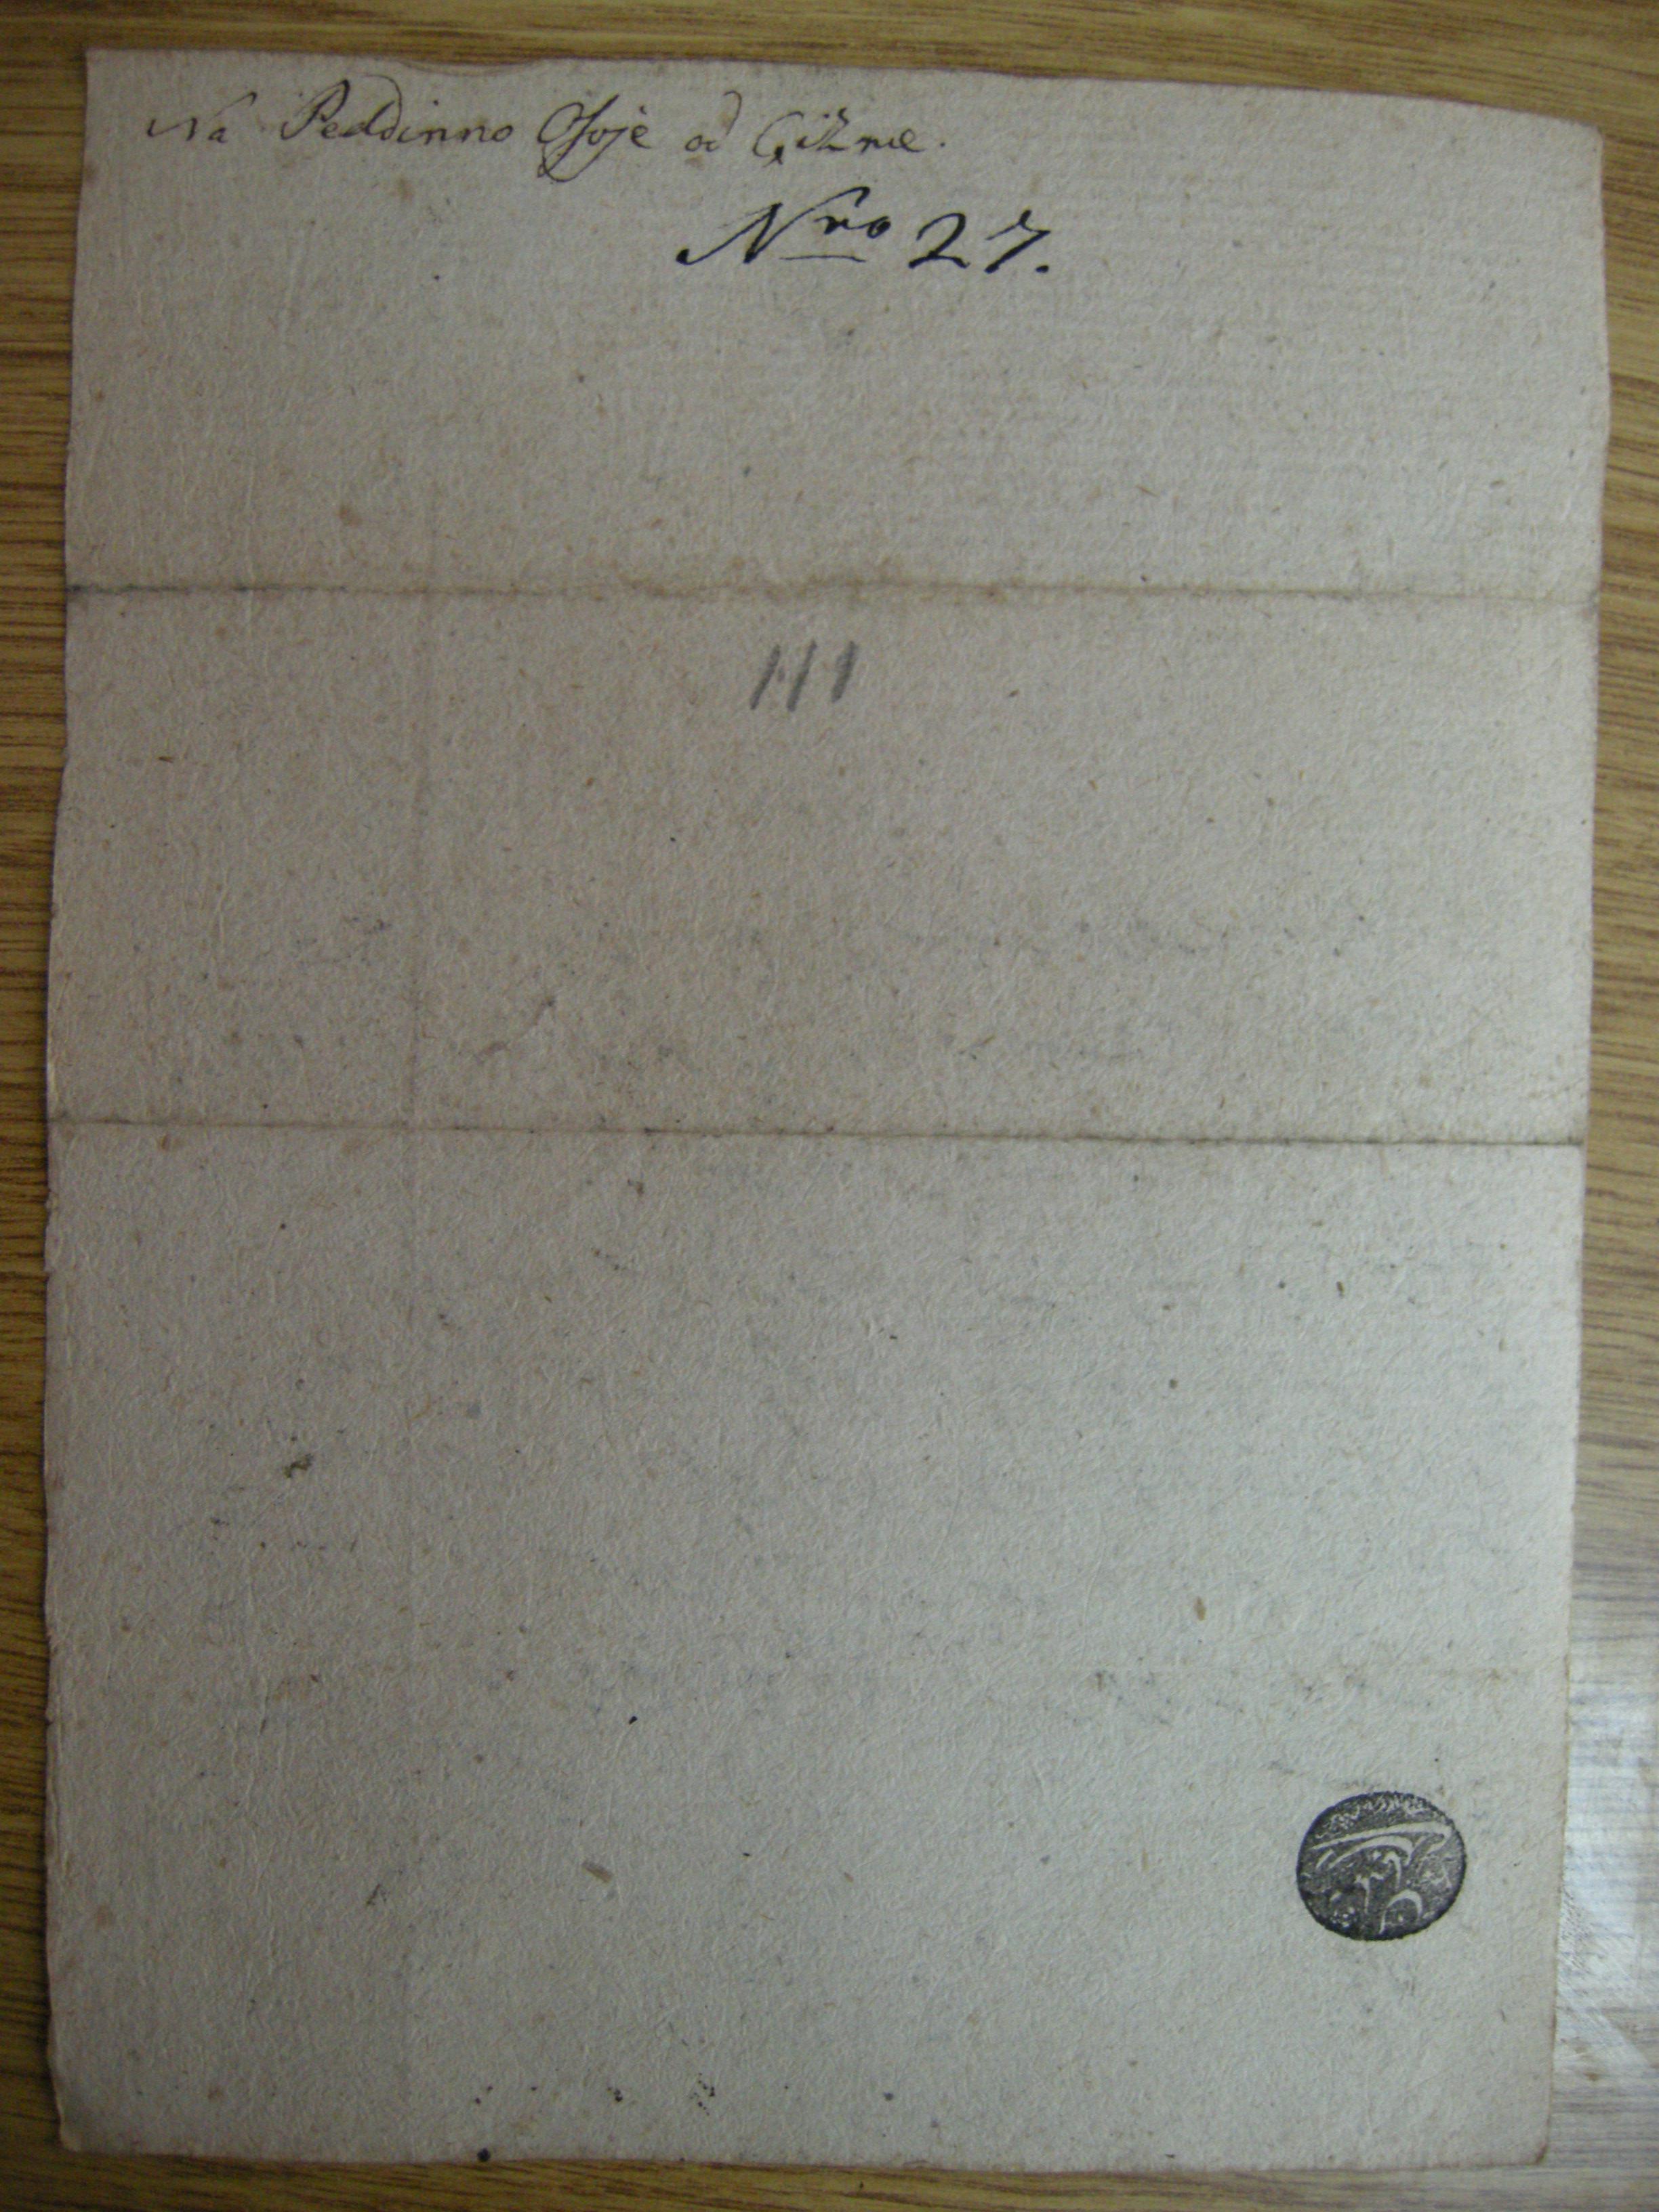 Na Peddinno Osoje od Çizme.
Nro 27.
111